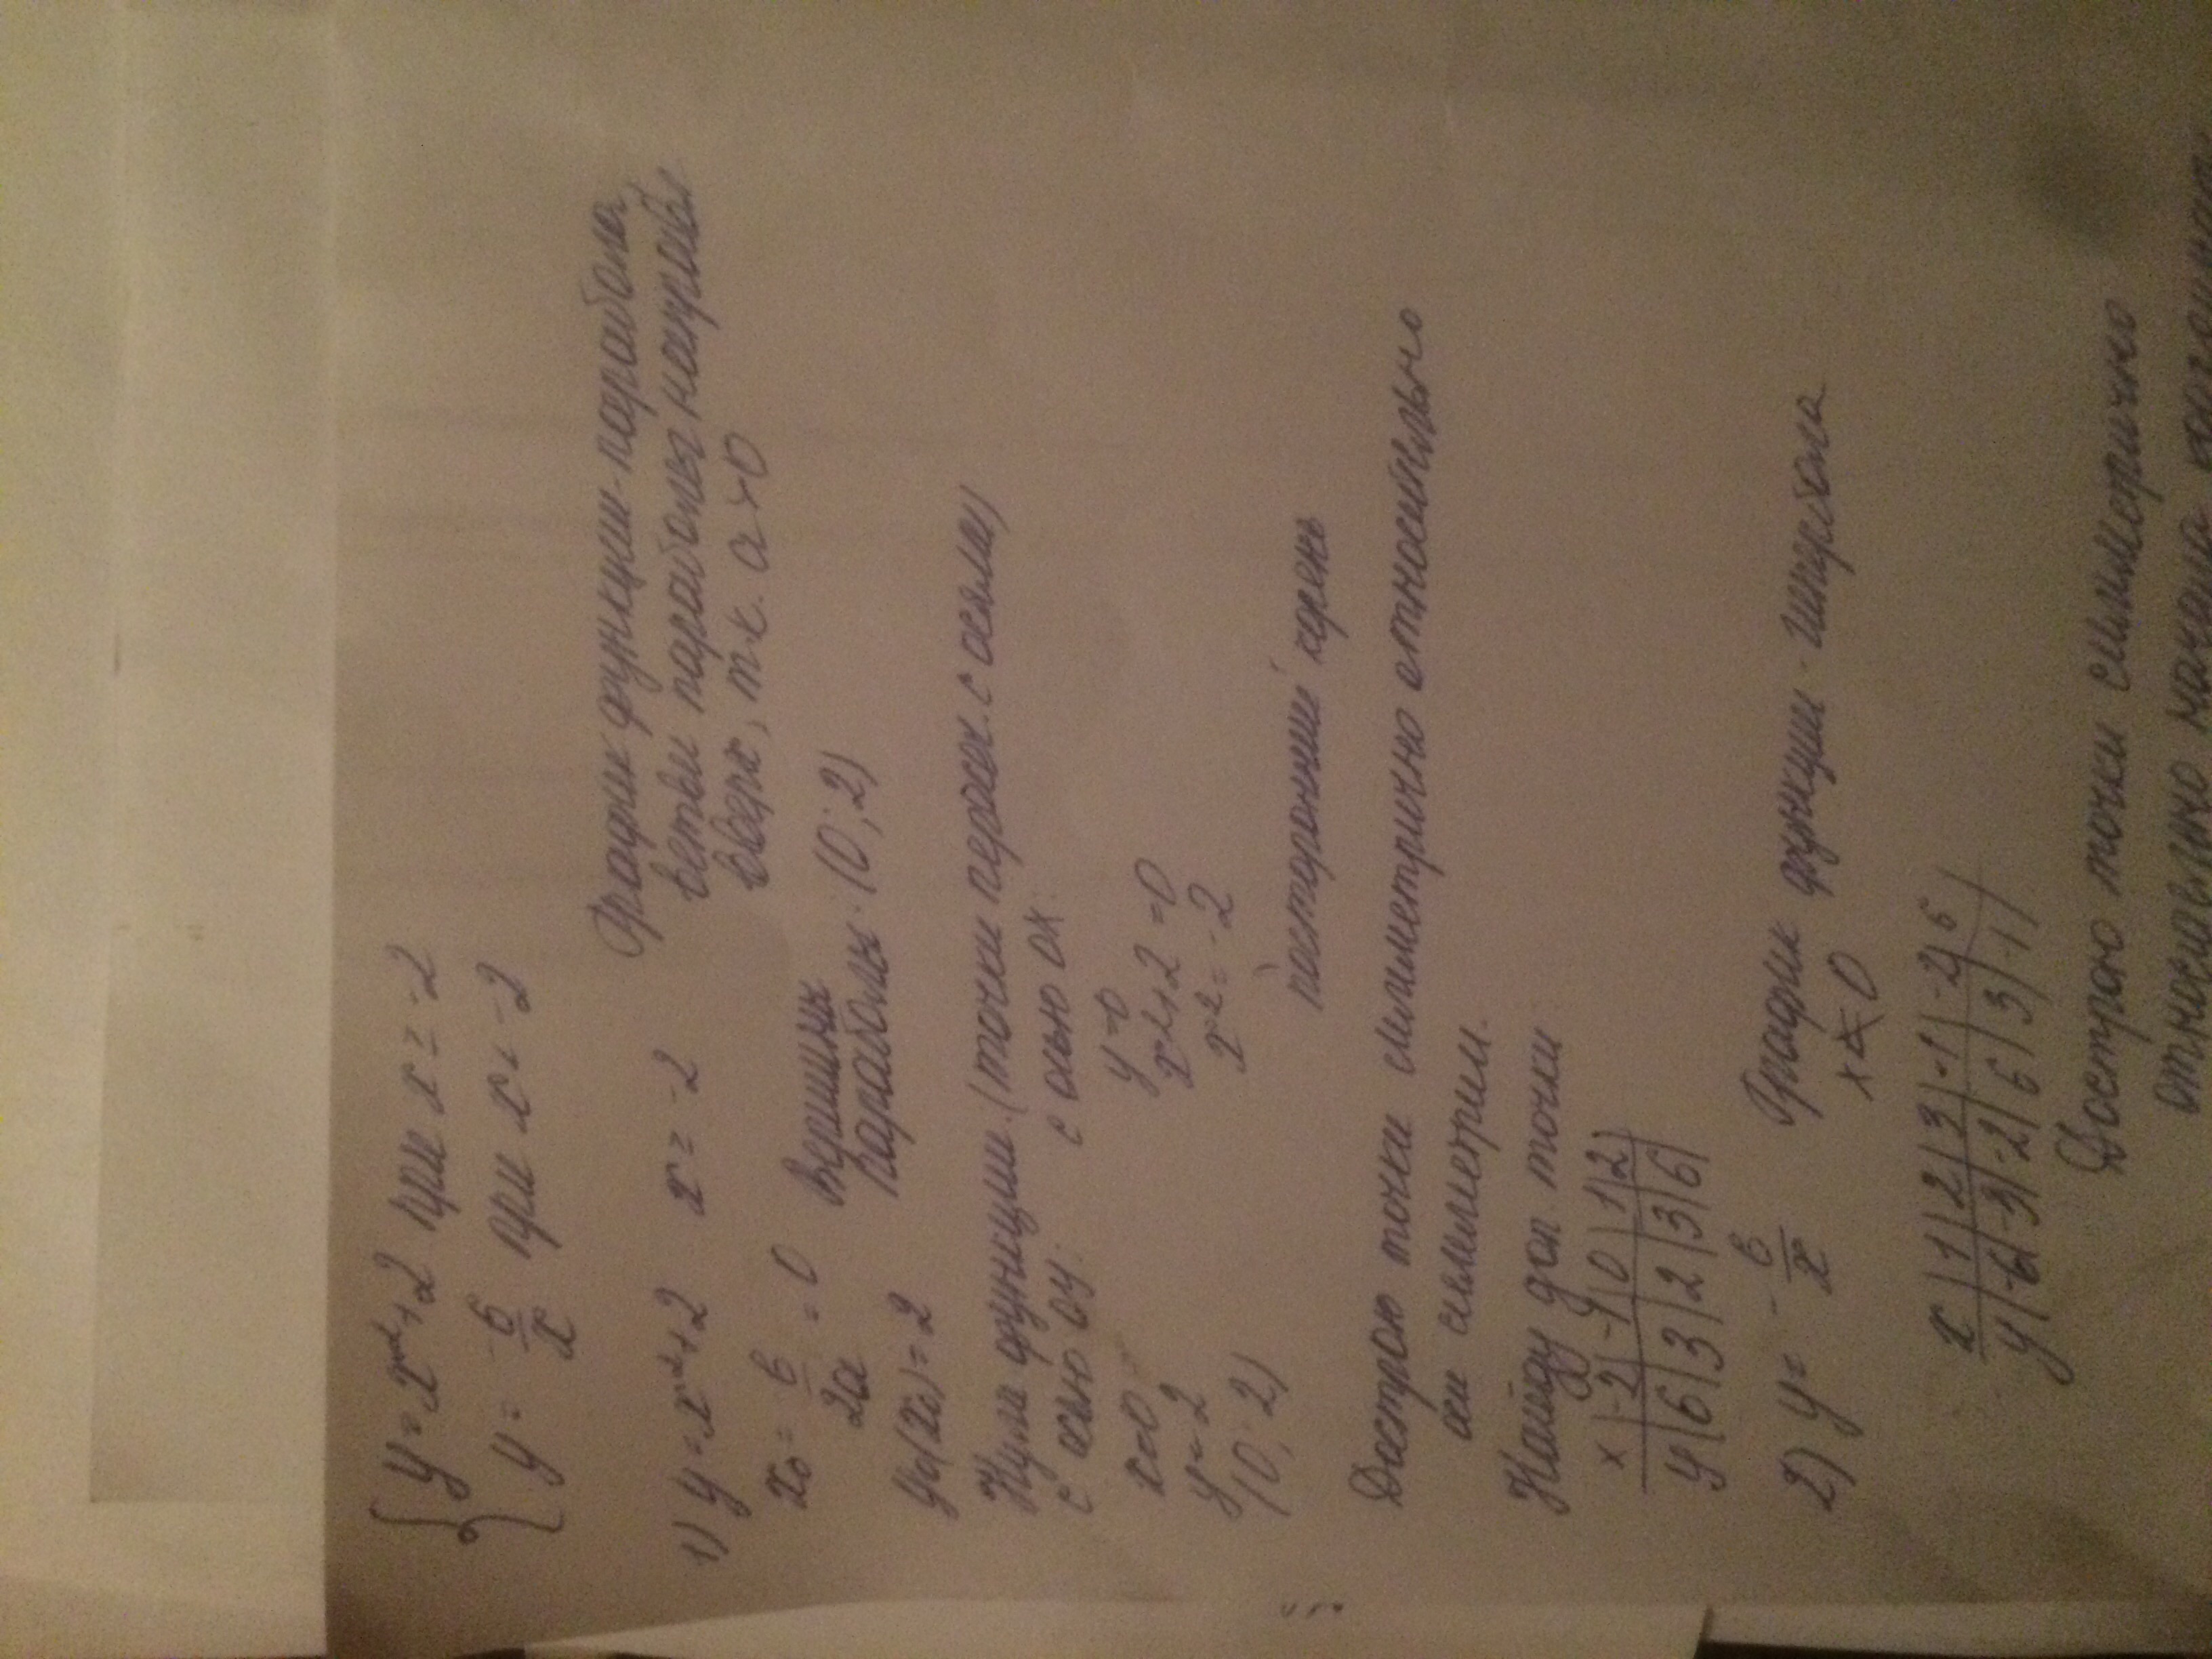 y = x²+2 при x ≥ -2
y = -6/x при x < -2
График функции-парабола,
1) y = x²+2 x ≥ -2 ветви параболы направлены
вверх, т.к. a>0
x₀ = -b/2a = 0 вершины
параболы. (0; 2)
y₀(x₀) = 2
Нули функции. (точки пересеч. с осями)
с осью oy: с осью ox.
x=0 y=0
y=2 x²+2=0
(0; 2) x²=-2
посторонний корень
Дострою точки симметрично относительно
оси симметрии.
Найду доп точки
x | -2 | -1 | 0 | 1 | 2 |
y | 6 | 3 | 2 | 3 | 6 |
2) y = -6/x График функции - гипербола
x ≠ 0
x | 1 | 2 | 3 | -1 | -2 | 6
y | -6 | -3 | -2 | 6 | 3 | -1 |
Дострою точки симметрично
относительно начала